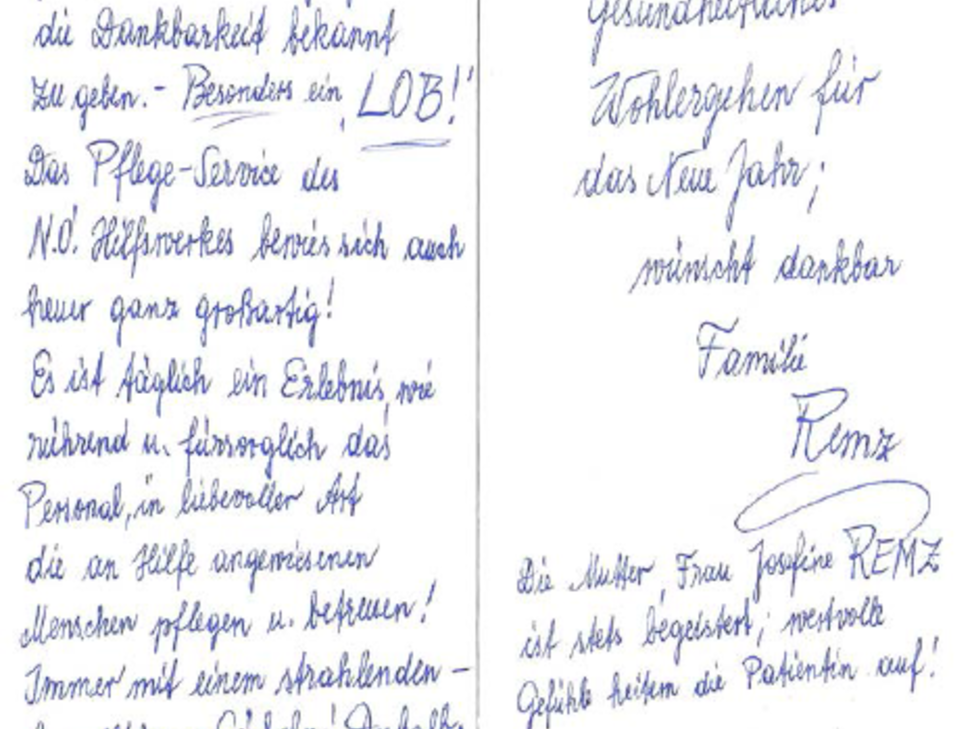 die Dankbarkeit bekannt
zu geben. - Besonders ein „LOB!"
Das Pflege-Service des
N.Ö. Hilfswerkes bewies sich auch
heuer ganz großartig!
Es ist täglich ein Erlebnis, wie
rührend u. fürsorglich das
Personal, in liebevoller Art
die an Hilfe angewiesenen
Menschen pflegen u. betreuen!
Immer mit einem strahlenden -
Gesundheitliches
Wohlergehen für
das Neue Jahr;
wünscht dankbar
Familie
Remz
Die Mutter, Frau Josefine REMZ
ist stets begeistert; wertvolle
Gefühle heitern die Patientin auf!